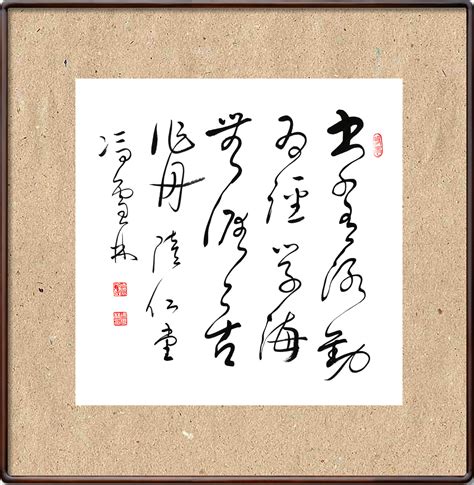 书山有路勤
为径学海
無涯苦
作舟 仁堂
冯雪林